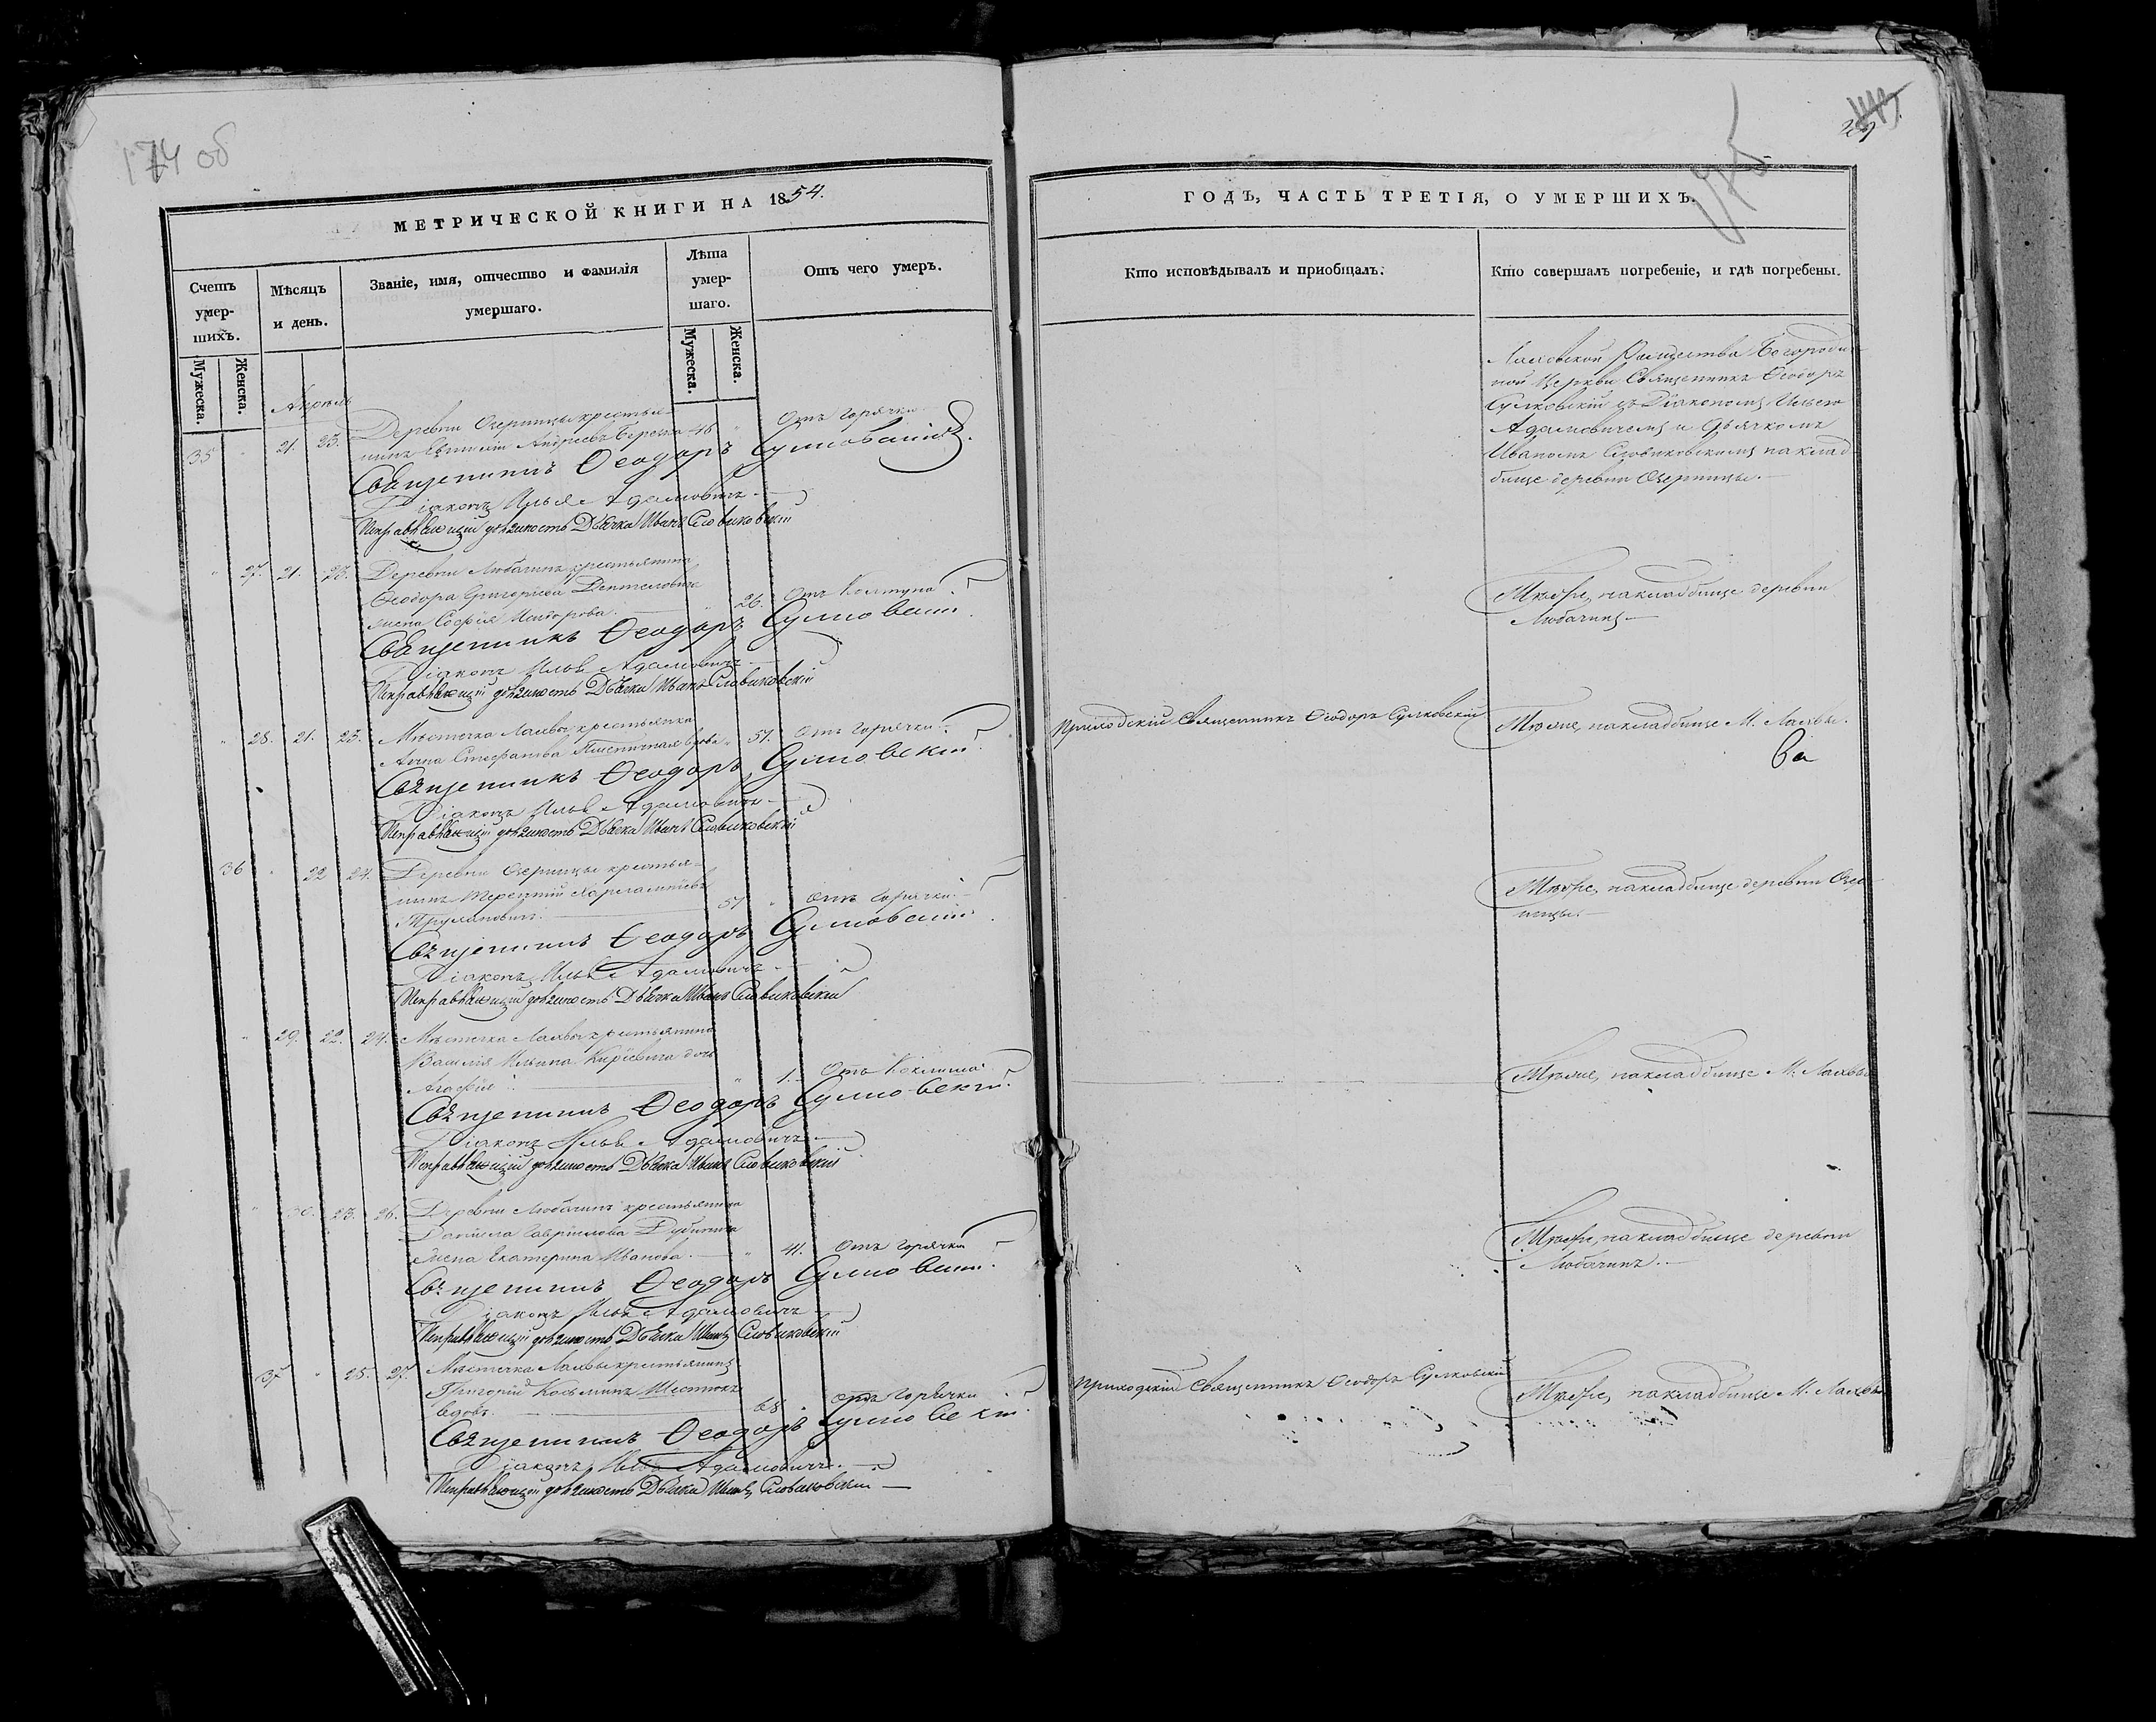 174 об
МЕТРИЧЕСКОЙ КНИГИ НА 1854.
Счетъ умер-шихъ.
Мужеска.
Женска.
Мѣсяцъ и день.
Званіе, имя, отчество и фамилія
умершаго.
Лѣта умер-шаго.
Мужеска.
Женска.
Отъ чего умеръ.
Апрѣль
35 " 21. 23. Деревни Озерницы крестья-
нинъ Андреевъ 48 " Отъ горячки
Священникъ Ѳеодоръ Сулковскій
Діаконъ Илья Адамовичъ
Исправляющій должность Дьячка Иванъ Словиковскій
" 27. 21. 23. Деревни Любачинъ крестьянина
Ѳеодора Григорьева
жена Софія 26. Отъ Колтуна
Священникъ Ѳеодоръ Сулковскій
Діаконъ Илья Адамовичъ
Исправляющій должность Дьячка Иванъ Словиковскій
" 28. 21. 23. Мѣстечка Лахвы крестьянка
Анна Стефанова вдова " 51. Отъ горячки
Священникъ Ѳеодоръ Сулковскій
Діаконъ Илья Адамовичъ
Исправляющій должность Дьячка Иванъ Словиковскій
36 " 22 24. Деревни Озерницы крестья-
нинъ Терентій Харлампіевъ
57 " Отъ горячки
Священникъ Ѳеодоръ Сулковскій
Діаконъ Илья Адамовичъ
Исправляющій должность Дьячка Иванъ Словиковскій
" 29. 22. 24. Мѣстечка Лахвы крестьянина
Василія Ильина дочь
Агафія " 1. Отъ Коклюша
Священникъ Ѳеодоръ Сулковскій
Діаконъ Илья Адамовичъ
Исправляющій должность Дьячка Иванъ Словиковскій
" 30. 23. 26. Деревни Любачинъ крестьянина
Даніила Гавріилова
жена Екатерина Иванова. " 41. Отъ горячки
Священникъ Ѳеодоръ Сулковскій
Діаконъ Илья Адамовичъ
Исправляющій должность Дьячка Иванъ Словиковскій
37 " 25. 27. Мѣстечка Лахвы крестьянинъ
Григорій Косьминъ Шестюкъ
вдовъ. 68 " Отъ горячки
Священникъ Ѳеодоръ Сулковскій
Діаконъ Илья Адамовичъ
Исправляющій должность Дьячка Иванъ Словиковскій
ГОДЪ, ЧАСТЬ ТРЕТІЯ, О УМЕРШИХЪ.
Кто исповѣдывалъ и пріобщалъ.
Кто совершалъ погребеніе, и гдѣ погребены.
Лаховской Рождества Богородич-
ной Церкви Священникъ Ѳеодоръ
Сулковскій съ Діакономъ Ильею
Адамовичемъ и Дьячкомъ
Иваномъ Словиковскимъ на клад-
бище деревни Озерницы.
Тѣже, на кладбище деревни
Любачинъ
Приходскій Священникъ Ѳеодоръ Сулковскій
Тѣже, на кладбище М. Лахвы.
Тѣже, на кладбище деревни Озер-
ницы.
Тѣже, на кладбище М. Лахвы
Тѣже, на кладбище деревни
Любачинъ.
Приходскій Священникъ Ѳеодоръ Сулковскій
Тѣже, на кладбище М. Лахвы